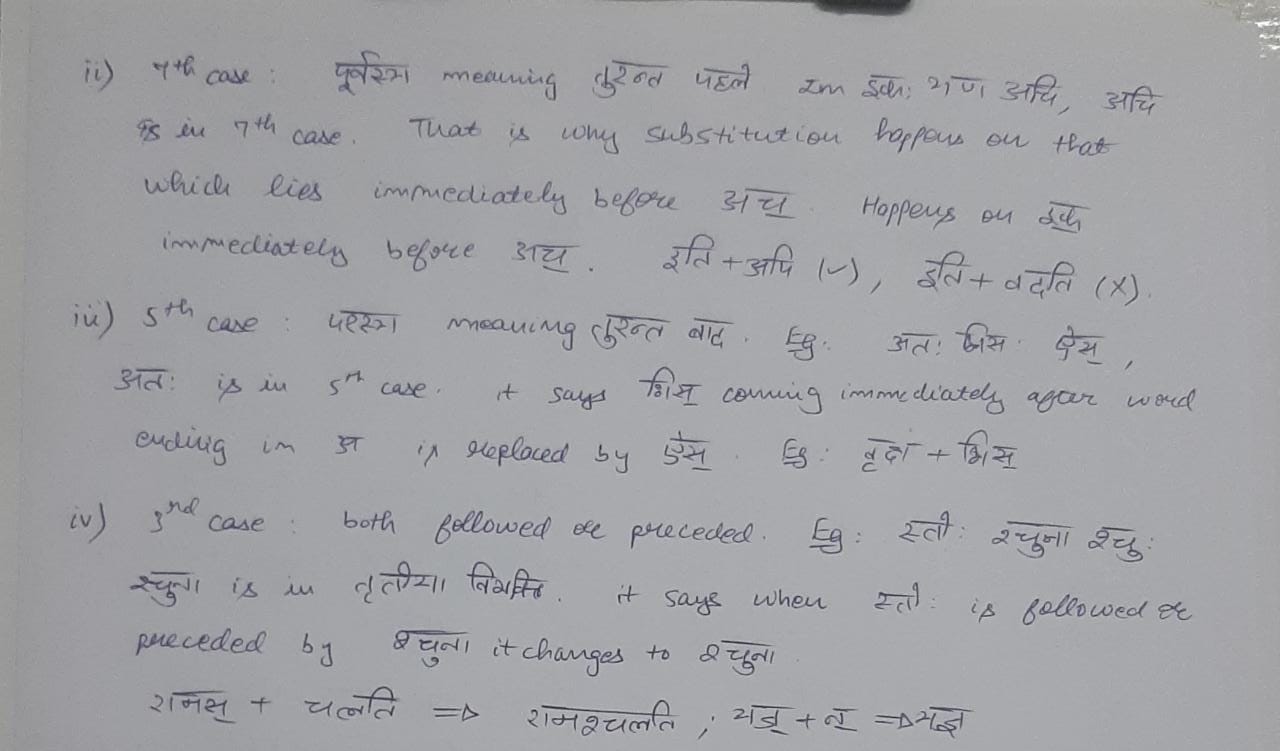 ii) 7th case : पूर्वस्य meaning तुरन्त पहले In इकः यण अचि, अचि
is in 7th case. That is why substitution happens on that
which lies immediately before अच्. Happens on इक्
immediately before अच्. इति + अपि (✓), इति + वदति (X).
iii) 5th case : परस्य meaning तुरन्त बाद. Eg: अतः भिस ऐस्,
अतः is in 5th case. it says भिस् coming immediately after word
ending in अ is replaced by ऐस्. Eg: + भिस्
iv) 3rd case : both followed or preceded. Eg: स्तोः श्चुना श्चुः
श्चुना is in तृतीया विभक्ति. it says when स्तोः is followed or
preceded by श्चुना it changes to श्चुना
रामस् + चलति ⇒ रामश्चलति ; यज् + न् ⇒ यज्ञ